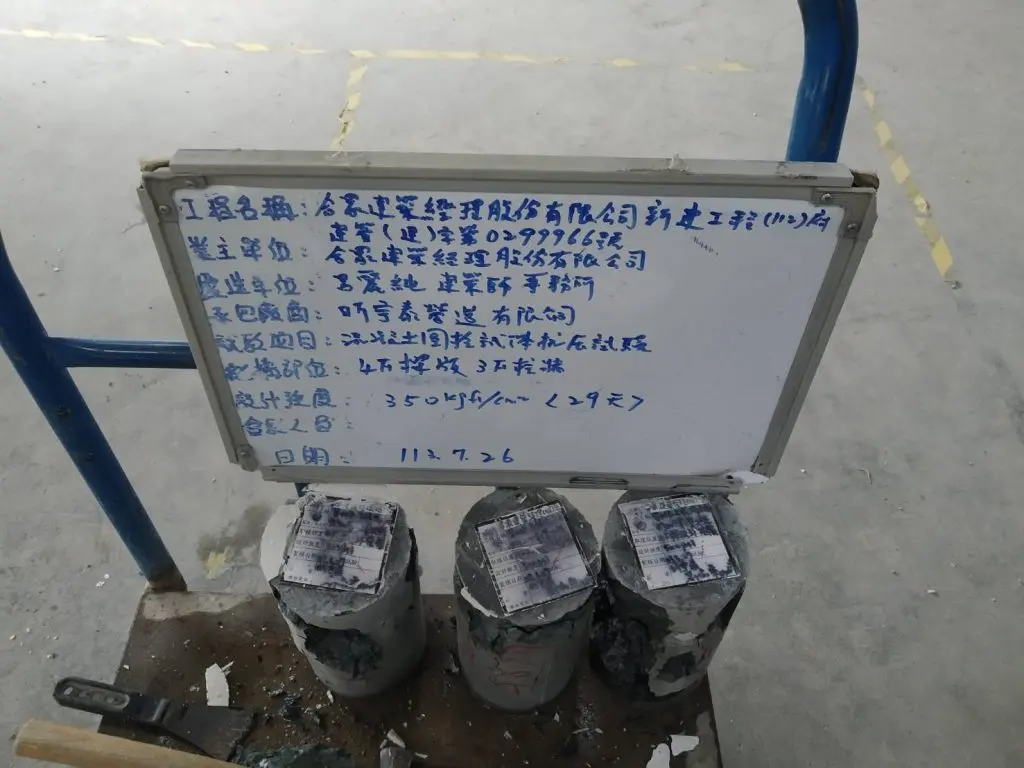 工程名稱：合眾建業經理股份有限公司新建工程(112)府
建管(建)字第0299966號
業主單位：合眾建業經理股份有限公司
監造單位：呂愛純建築師事務所
承包廠商：昕亨泰營造有限公司
試驗項目：混凝土圓柱試體抗壓試驗
配構部位：4F樑版 3F柱牆
設計強度：350kgf/cm² <29天>
會驗人員：
日期：113.7.26